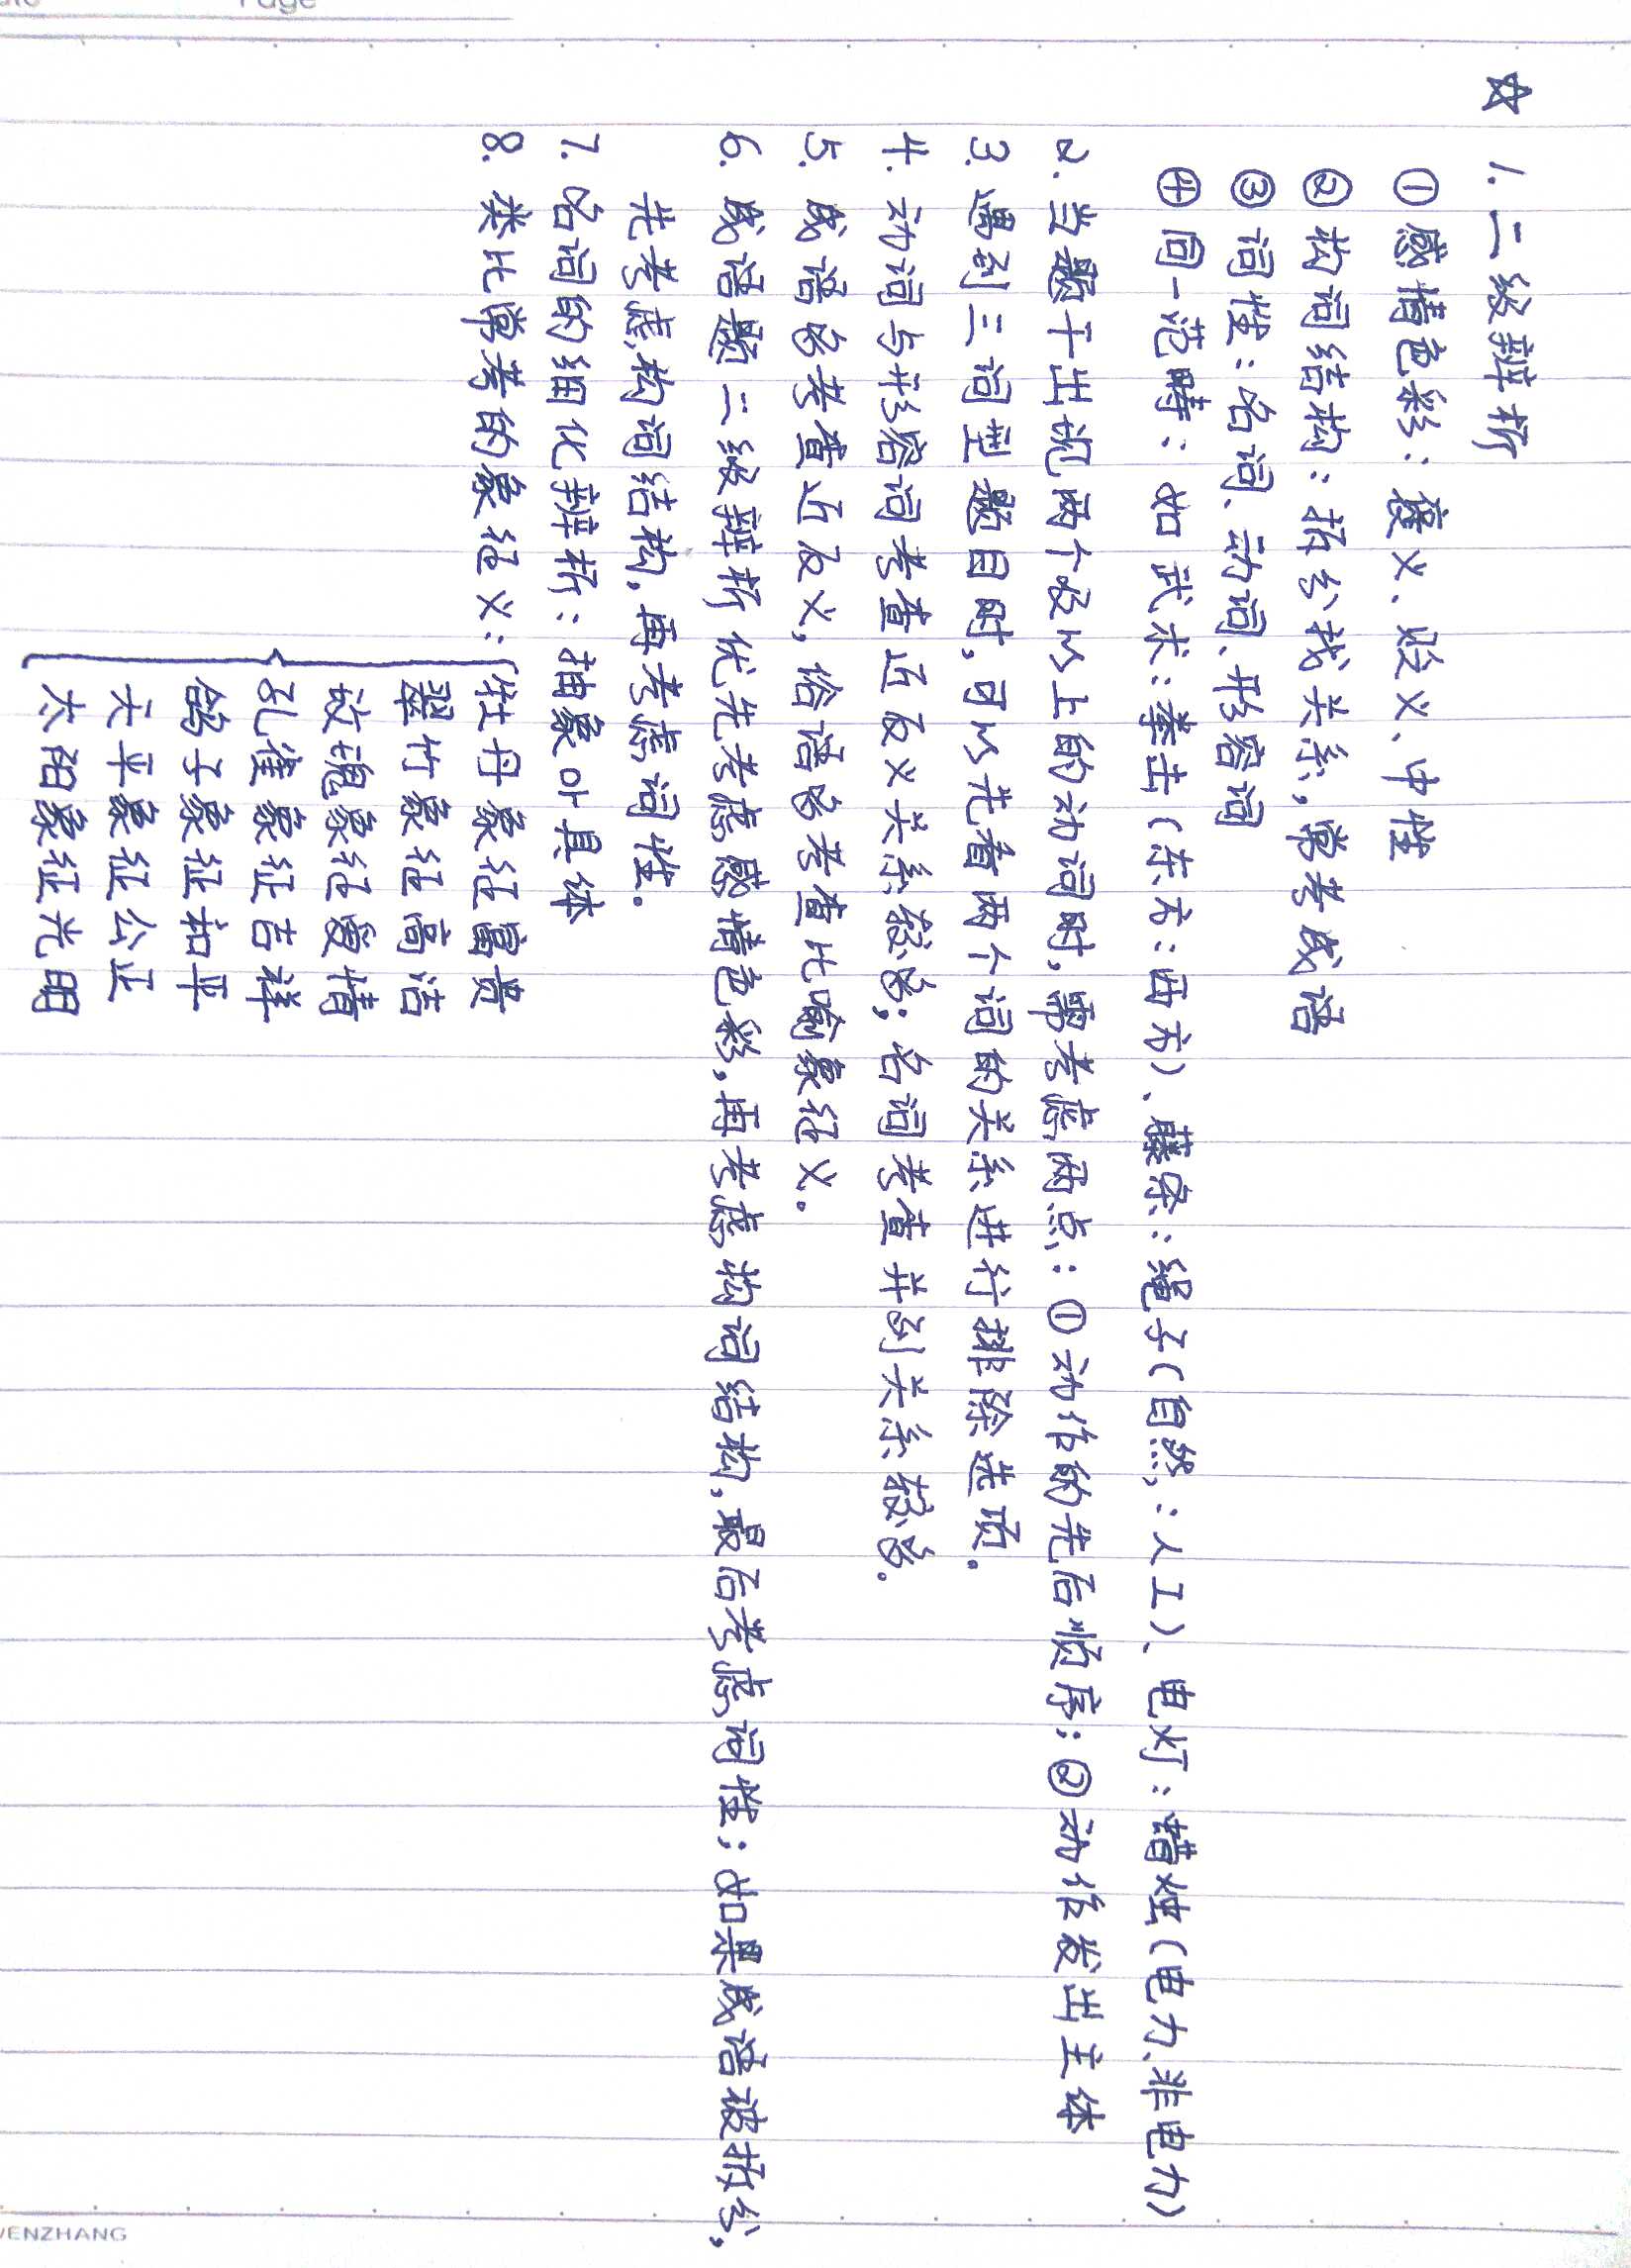 ☆ 1. 二级辩析
① 感情色彩：褒义、贬义、中性
② 构词结构：拆分找关系，常考成语
③ 词性：名词、动词、形容词
④ 同一范畴：如武术：拳击（东方：西方）、藤条：绳子（自然：人工）、电灯：蜡烛（电力、非电力）
2. 当题干出现两个及以上的动词时，需考虑两点：①动作的先后顺序；②动作发出主体
3. 遇到三词型题目时，可以先看两个词的关系进行排除选项.
4. 动词与形容词考查近反义关系较多；名词考查并列关系较多.
5. 成语多考查近反义，俗语多考查比喻象征义.
6. 成语题二级辩析优先考虑感情色彩，再考虑构词结构，最后考虑词性；如果成语被拆分，
先考虑构词结构，再考虑词性.
7. 名词的细化辩析：抽象or具体
8. 类比常考的象征义：牡丹象征富贵
翠竹象征高洁
玫瑰象征爱情
孔雀象征吉祥
鸽子象征和平
天平象征公正
太阳象征光明
Page
WENZHANG